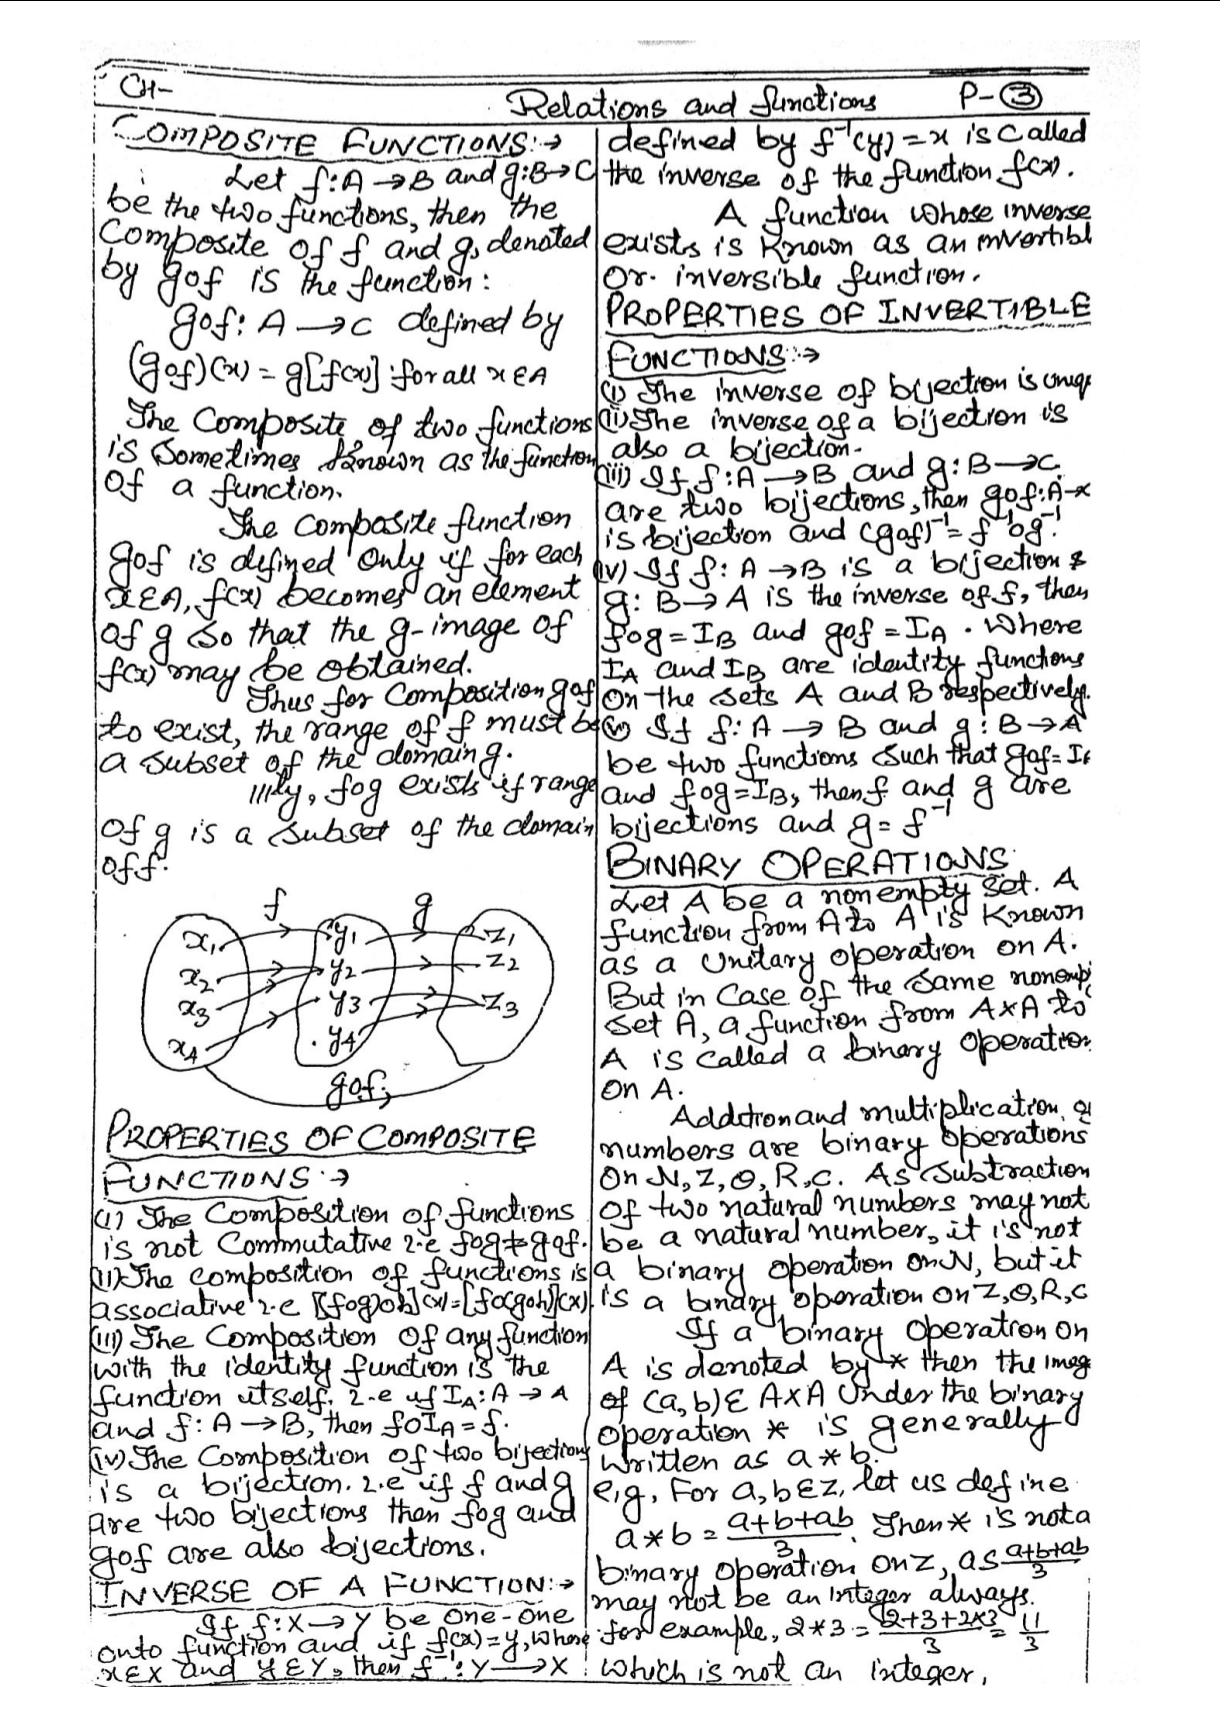 CH-
Relations and functions P-③
COMPOSITE FUNCTIONS:→
Let f:A→B and g:B→C
be the two functions, then the
Composite of f and g, denoted
by gof is the function:
gof: A→C defined by
(gof)(x) = g[f(x)] for all x∈A
The Composite of two functions
is Sometimes known as the function
of a function.
The composite function
gof is defined only if for each
x∈A, f(x) becomes an element
of g so that the g-image of
f(x) may be obtained.
Thus for Composition gof
to exist, the range of f must be
a subset of the domain g.
|||ly, fog exists if range
of g is a subset of the domain
of f.
f g
x₁ y₁ z₁
x₂ y₂ z₂
x₃ y₃ z₃
x₄ y₄
gof;
PROPERTIES OF COMPOSITE
FUNCTIONS:→
(i) The Composition of functions
is not Commutative i.e fog≠gof.
(ii) The composition of functions is
associative i.e [(fog)oh](x)=[fo(goh)](x).
(iii) The Composition of any function
with the identity function is the
function itself. i.e if I_A: A→A
and f: A→B, then foI_A=f.
(iv) The Composition of two bijections
is a bijection. i.e if f and g
are two bijections then fog and
gof are also bijections.
INVERSE OF A FUNCTION:→
If f:X→Y be one-one
onto function and if f(x)=y, where
x∈X and y∈Y, then f⁻¹: Y→X
defined by f⁻¹(y)=x is called
the inverse of the function f(x).
A function whose inverse
exists is known as an invertibl
or inversible function.
PROPERTIES OF INVERTIBLE
FUNCTIONS:→
(i) The inverse of bijection is uniq
(ii) The inverse of a bijection is
also a bijection.
(iii) If f:A→B and g:B→C
are two bijections, then gof:A→
is bijection and (gof)⁻¹=f⁻¹og⁻¹.
(iv) If f: A→B is a bijection &
g: B→A is the inverse of f, then
fog=I_B and gof=I_A. Where
I_A and I_B are identity functions
on the sets A and B respectively.
(v) If f: A→B and g: B→A
be two functions such that gof=I
and fog=I_B, then f and g are
bijections and g=f⁻¹
BINARY OPERATIONS:
Let A be a nonempty set. A
function from A to A is known
as a Unitary operation on A.
But in case of the same nonemp
set A, a function from A×A to
A is called a binary operation
on A.
Addition and multiplication of
numbers are binary operations
on N, Z, Q, R, C. As Subtraction
of two natural numbers may not
be a natural number, it is not
a binary operation on N, but it
is a binary operation on Z, Q, R, C
If a binary operation on
A is denoted by * then the imag
of (a,b)∈ A×A Under the binary
operation * is generally
written as a*b.
e.g. For a,b∈Z, let us define
a*b = (a+b+ab)/3. Then * is not a
binary operation on Z, as (a+b+ab)/3
may not be an Integer always.
for example, 2*3 = (2+3+2×3)/3 = 11/3
which is not an integer,